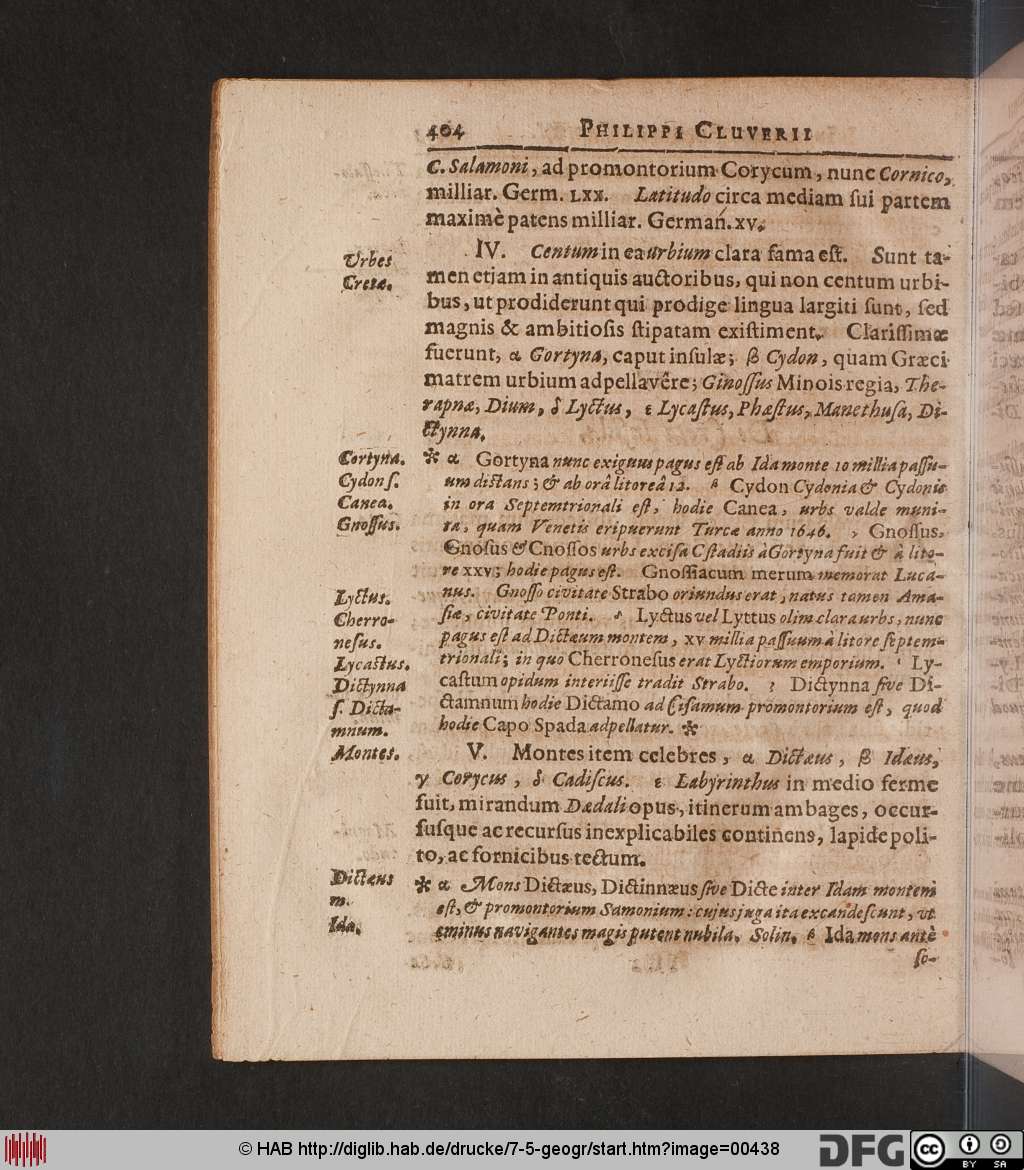 404 PHILIPPI CLUVERII
C. Salamoni, ad promontorium Corycum, nunc Cornico,
milliar. Germ. LXX. Latitudo circa mediam ſui partem
maximè patens milliar. German. XV.
Urbes
Cretæ.
IV. Centum in ea urbium clara fama eſt. Sunt ta-
men etjam in antiquis auctoribus, qui non centum urbi-
bus, ut prodiderunt qui prodige lingua largiti ſunt, ſed
magnis & ambitioſis ſtipatam exiſtiment. Clariſſimæ
fuerunt, α Gortyna, caput inſulæ; β Cydon, quam Græci
matrem urbium adpellavêre; Ginoſſus Minois regia, The-
rapnæ, Dium, δ Lyctus, ε Lycaſtus, Phæſtus, Manethuſa, Di-
ctynna.
Cortyna.
Cydon ſ.
Canea.
Gnoſſus.
* α Gortyna nunc exiguus pagus eſt ab Ida monte 10 millia paſſu-
um distans; & ab orâ litoreâ 12. β Cydon Cydonia & Cydonis
in ora Septemtrionali eſt, hodie Canea, urbs valde muni-
ta, quam Venetis eripuerunt Turcæ anno 1646. γ Gnoſſus,
Gnoſus & Cnoſſos urbs exciſa C ſtadiis à Gortyna fuit & à lito-
re XXV; hodie pagus eſt. Gnoſſiacum merum memorat Luca-
nus. Gnoſſo civitate Strabo oriundus erat, natus tamen Ama-
ſiæ, civitate Ponti. δ Lyctus vel Lyttus olim clara urbs, nunc
pagus eſt ad Dictæum montem, XV millia paſſuum à litore ſeptem-
trionali; in quo Cherroneſus erat Lyctiorum emporium. ε Ly-
caſtum opidum interiiſſe tradit Strabo. ζ Dictynna ſive Di-
ctamnum hodie Dictamo ad Ciſamum promontorium eſt, quod
hodie Capo Spada adpellatur. *
Lyctus.
Cherro-
neſus.
Lycaſtus.
Dictynna
ſ. Dicta-
mnum.
Montes.
V. Montes item celebres, α Dictæus, β Idæus,
γ Corycus, δ Cadiſcus. ε Labyrinthus in medio ferme
fuit, mirandum Dædali opus, itinerum ambages, occur-
ſuſque ac recurſus inexplicabiles continens, lapide poli-
to, ac fornicibus tectum.
Dictæus
m.
Ida.
* α Mons Dictæus, Dictinnæus ſive Dicte inter Idam montem
eſt, & promontorium Samonium: cujus juga ita excandeſcunt, ut
eminus navigantes magis putent nubila. Solin. β Ida mons antè
ſo-
© HAB http://diglib.hab.de/drucke/7-5-geogr/start.htm?image=00438
DFG
cc
BY SA